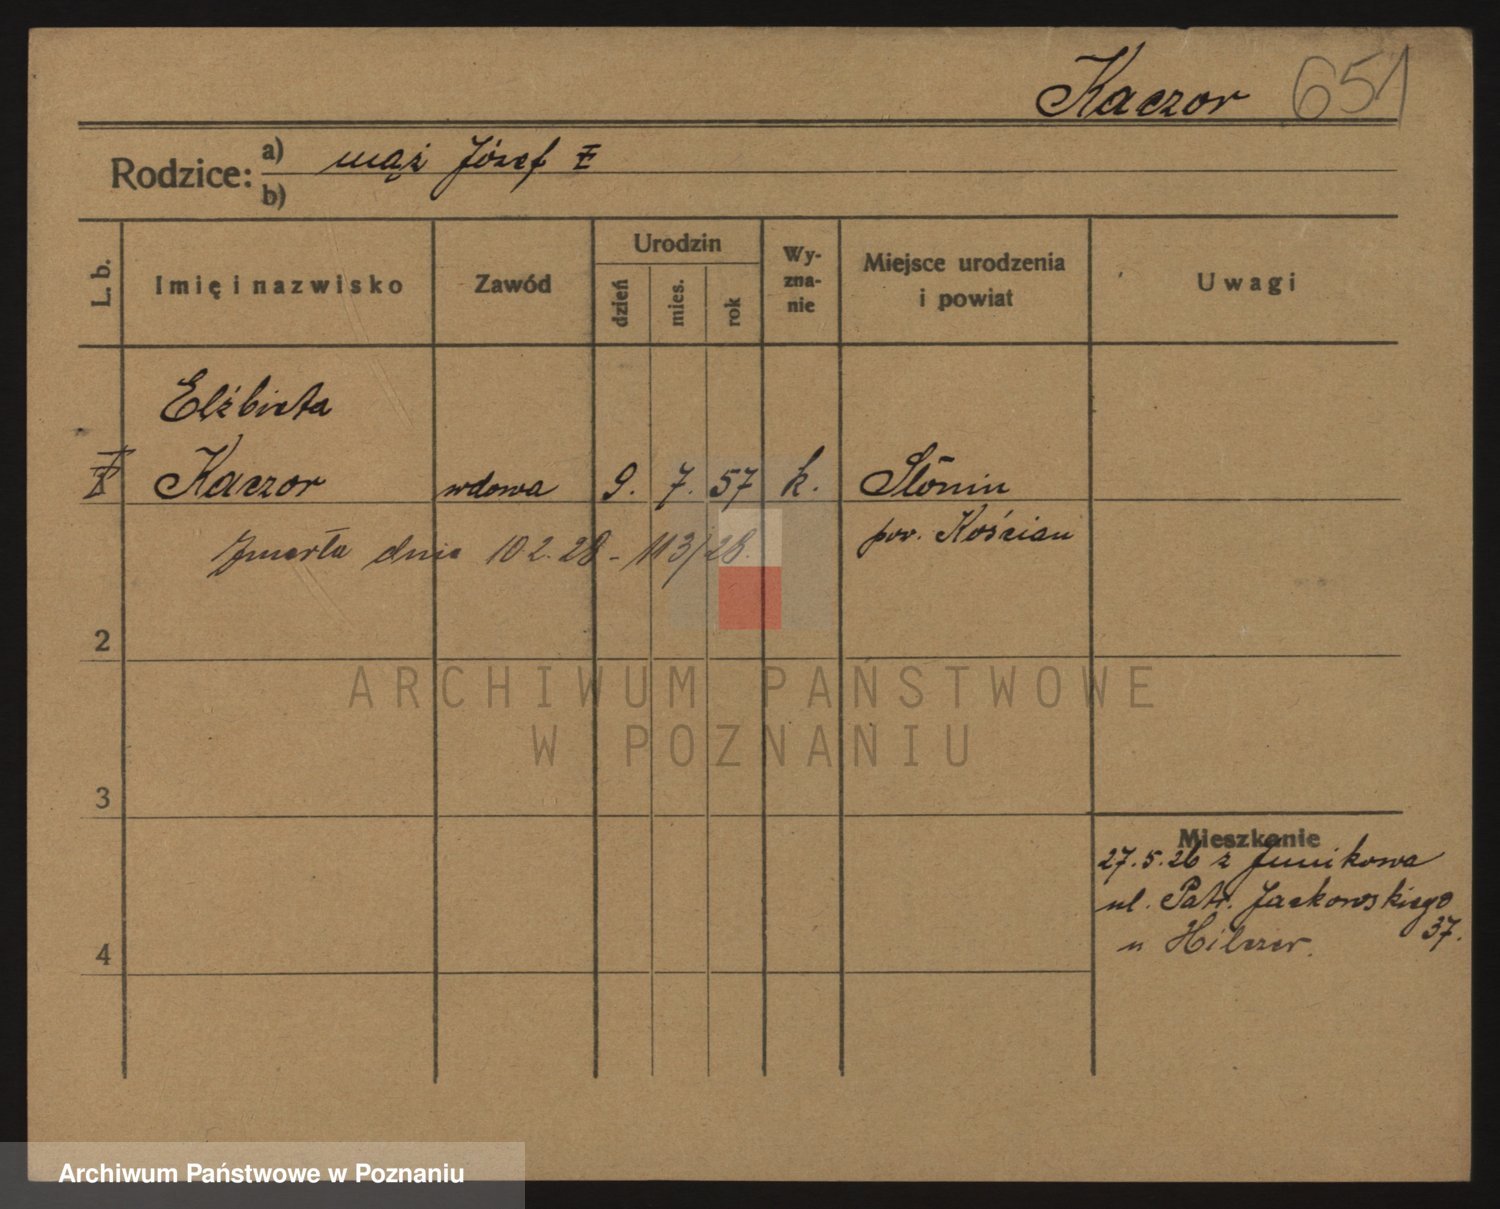 Kaczor 651
Rodzice: a) mąż Józef
b)
L. b.
Imię i nazwisko
Zawód
Urodzin
dzień
mies.
rok
Wy-
zna-
nie
Miejsce urodzenia
i powiat
Uwagi
Elżbieta
Kaczor wdowa 9. 7. 57 k. Słonin
pow. Kościan
Zmarła dnia 10 2. 28 - 113/28.
2
3
4
Mieszkanie
27.5.26 z Junikowa
ul. Patr. Jackowskiego
37.
u Hilczer.
ARCHIWUM PAŃSTWOWE
W POZNANIU
Archiwum Państwowe w Poznaniu